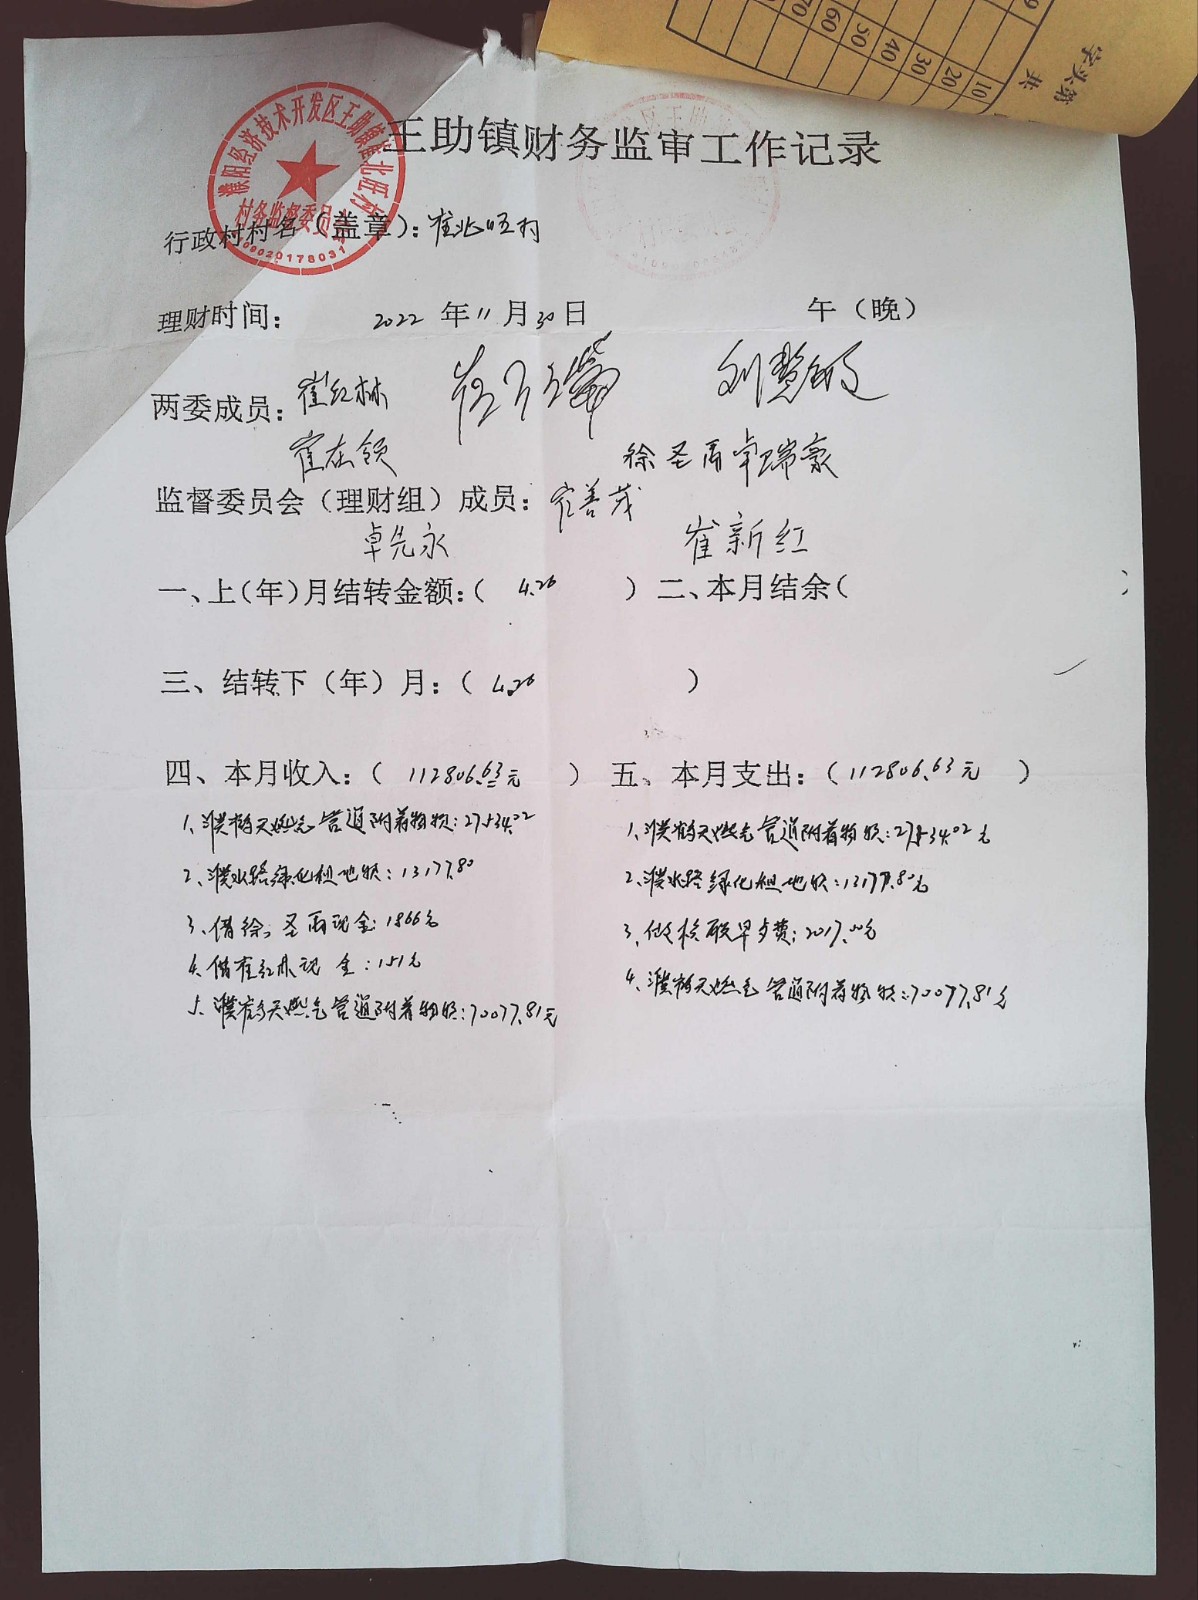 王助镇财务监审工作记录
濮阳经济技术开发区王助镇崔北旺村
村务监督委员会
行政村村名（盖章）：崔北旺村
理财时间： 2022 年 11 月 30 日 午（晚）
两委成员：崔红林
崔在领 徐圣雨 卓瑞豪
监督委员会（理财组）成员：崔善茂
卓先永 崔新红
一、上（年）月结转金额：（ 4.26 ） 二、本月结余（
三、结转下（年）月：（ 4.26 ）
四、本月收入：（ 112806.63元 ） 五、本月支出：（ 112806.63元 ）
1、濮鹤天燃气管道附着物款：27534.02 1、濮鹤天燃气管道附着物款：27534.02元
2、濮水路绿化租地款：13177.80 2、濮水路绿化租地款：13177.80元
3、借徐圣雨现金：1866元 3、做核酸早夕费：2017.00元
4、借崔红林现金：151元 4、濮鹤天燃气管道附着物款：70077.81元
5、濮鹤天燃气管道附着物款：70077.81元
字头第
共
10
20
30
40
50
60
70